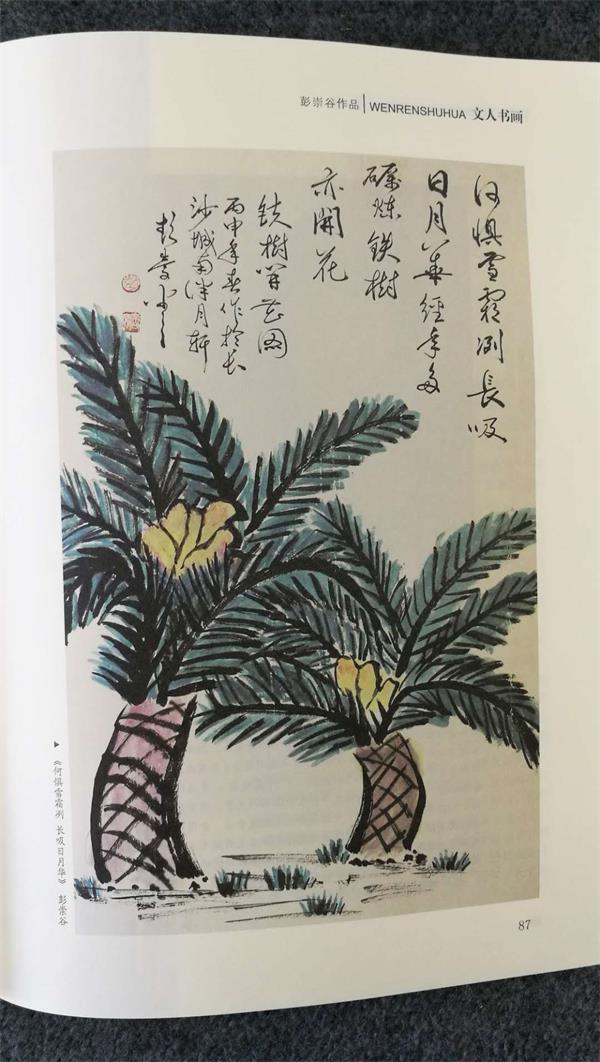 彭崇谷作品 WENRENSHUHUA 文人书画
何惧雪霜冽長吸
日月華經年多
礪炼鉄樹
亦開花
鉄樹開花图
丙申年春作於長
沙城南泮月轩
彭崇谷
《何惧雪霜冽 长吸日月华》 彭崇谷
87